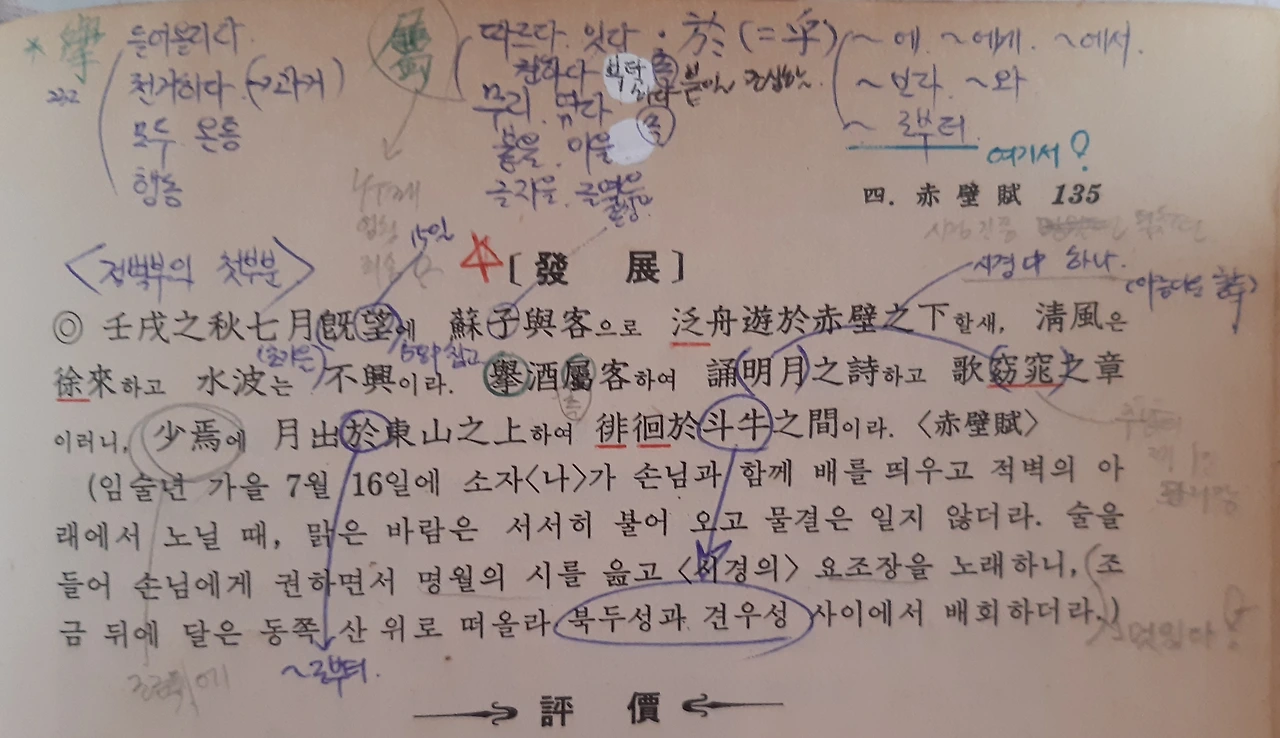 * 擧 들어올리다. 屬 따르다. 잇다. · 於 (= 乎) ~에. ~에게. ~에서.
232 천거하다 (→과거) 부탁 ~보다 ~와
모두 온통 무리. 엮다 ~로부터
행동 붙을. 이을 촉 여기서?
글자를
四. 赤壁賦 135
<적벽부의 첫부분> 15일 [發 展] 시경中 하나.
◎ 壬戌之秋七月旣望에 蘇子與客으로 泛舟遊於赤壁之下할새, 淸風은
徐來하고 水波는 不興이라. 擧酒屬客하여 誦明月之詩하고 歌窈窕之章
이러니, 少焉에 月出於東山之上하여 徘徊於斗牛之間이라. 〈赤壁賦〉
(임술년 가을 7월 16일에 소자<나>가 손님과 함께 배를 띄우고 적벽의 아
래에서 노닐 때, 맑은 바람은 서서히 불어 오고 물결은 일지 않더라. 술을
들어 손님에게 권하면서 명월의 시를 읊고 <시경의> 요조장을 노래하니, 조
금 뒤에 달은 동쪽 산 위로 떠올라 북두성과 견우성 사이에서 배회하더라.)
~로부터.
評 價